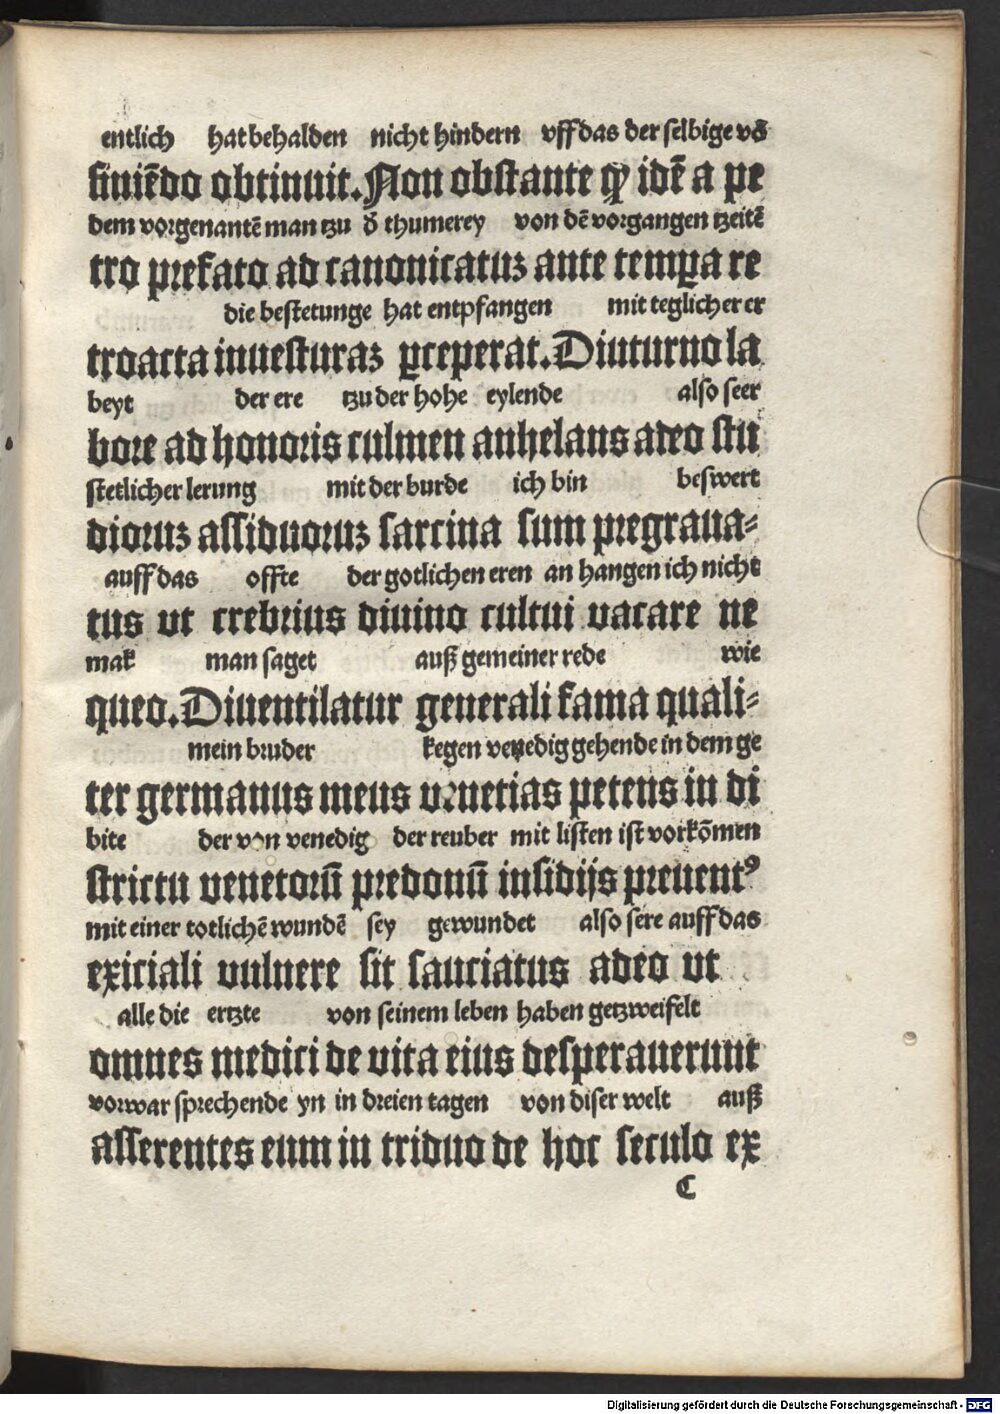 entlich hat behalden nicht hindern vff das der selbige vō
finiēdo obtinuit. Non obstante ꝙ idē a pe
dem vorgenantē man tzu d̄ thumerey von dē vorgangen tzeitē
tro prefato ad canonicatuꝫ ante tempꝑa re
die bestetunge hat entpfangen mit teglicher er
troacta inuesturaꝫ ꝑceperat. Diuturno la
beyt der ere tzu der hohe eylende also seer
bore ad honoris culmen anhelans adeo stu
stetlicher lerung mit der burde ich bin beswert
dioruꝫ assiduoruꝫ sarcina sum pregraua⸗
auff das offte der gotlichen eren an hangen ich nicht
tus ut crebrius diuino cultui vacare ne
mak man saget auß gemeiner rede wie
queo. Diuentilatur generali fama quali⸗
mein bruder kegen venedig gehende in dem ge
ter germanus meus venetias petens in di
bite der von venedig der reuber mit listen ist vorkōmen
strictu venetorū predonū insidijs preuentꝰ
mit einer totlichē wundē sey gewundet also sere auff das
exiciali vulnere sit sauciatus adeo ut
alle die ertzte von seinem leben haben getzweifelt
omnes medici de vita eius desperauerunt
vorwar sprechende yn in dreien tagen von diser welt auß
asserentes eum in triduo de hoc seculo ex
C
Digitalisierung gefördert durch die Deutsche Forschungsgemeinschaft - DFG